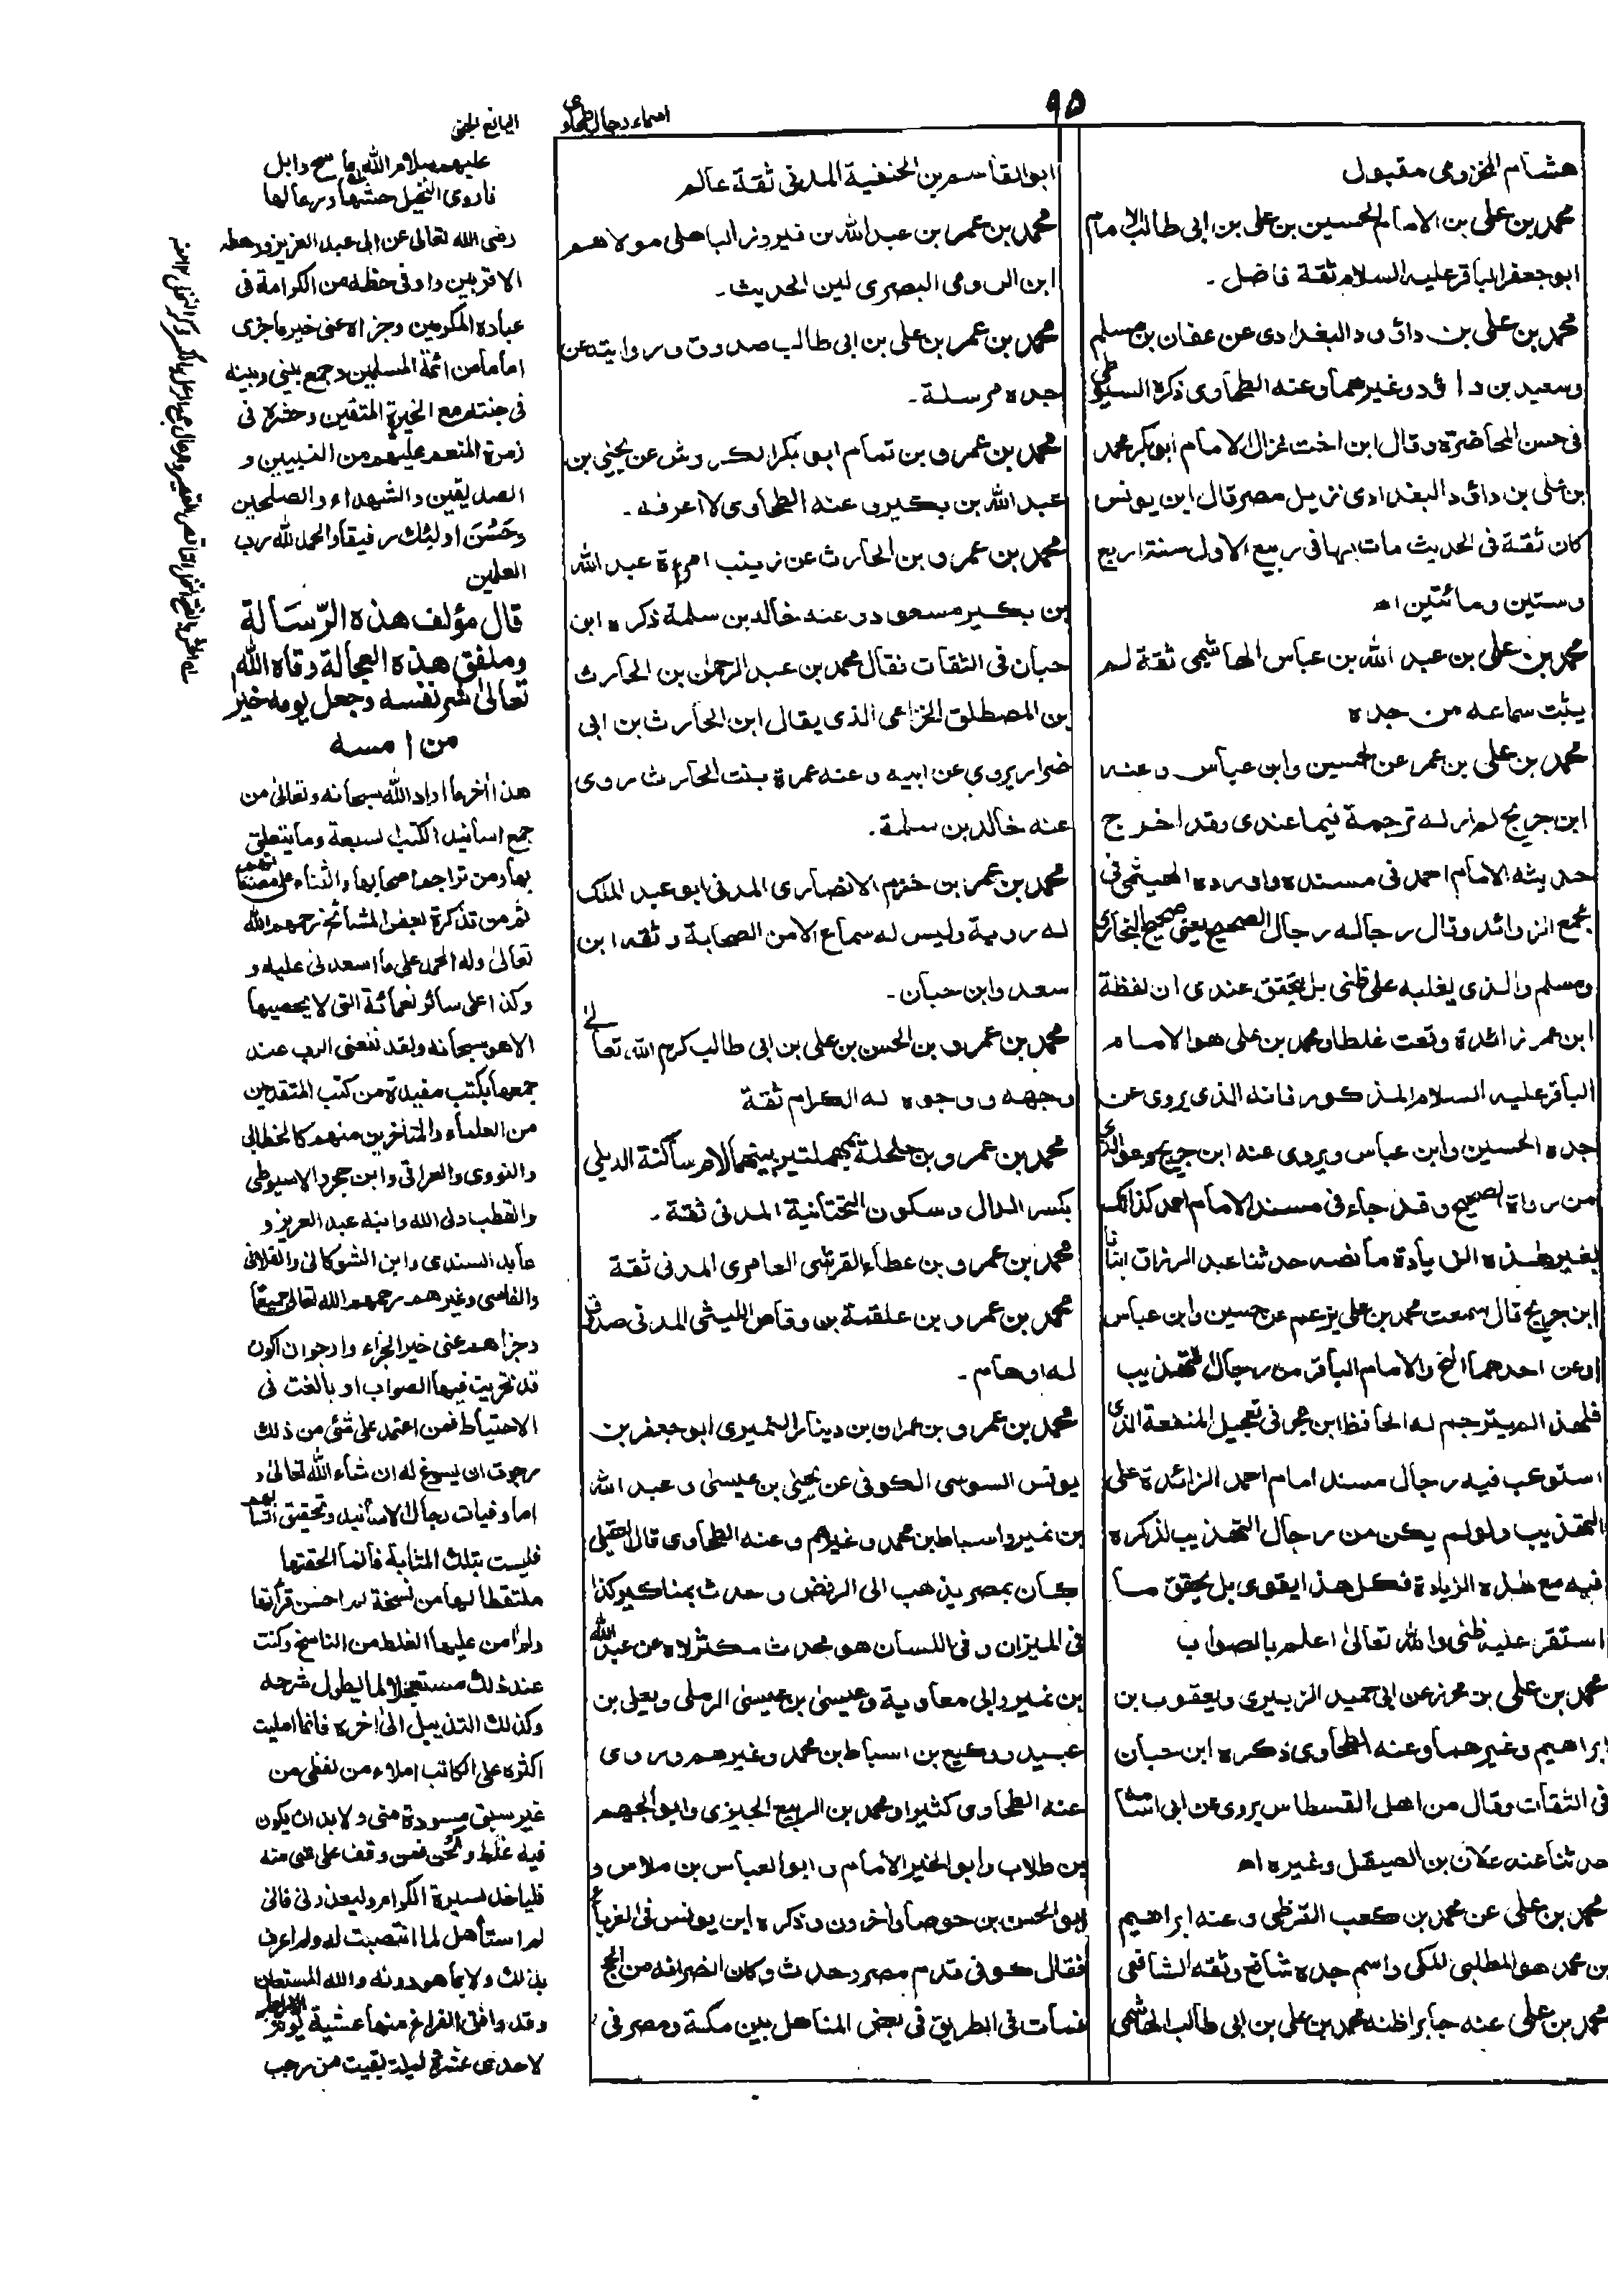 ٩٥
اسماء رجال طحاوی
اليانع الجنی
هشام المخزومی مقبول
محمد بن علی بن الامام الحسين بن علی بن ابی طالب الامام
ابو جعفر الباقر عليه السلام ثقة فاضل -
محمد بن علی بن داؤد البغدادی عن عفان بن مسلم
وسعيد بن داؤد وغيرهما وعنه الطحاوی ذكره السيوطی
فی حسن المحاضرة وقال ابن اخت غزال الامام ابو بكر محمد
بن علی بن داؤد البغدادی نزيل مصر قال ابن يونس
كان ثقة فی الحديث مات بها فی ربيع الاول سنة اربع
وستين ومائتين اه
محمد بن علی بن عبد الله بن عباس الهاشمی ثقة لم
يثبت سماعه من جده
محمد بن علی بن عمر عن الحسين وابن عباس وعنه
ابن جريج لم ار له ترجمة فيما عندی وقد اخرج
حديثه الامام احمد فی مسنده واورده الهيثمی فی
مجمع الزوائد وقال رجاله رجال الصحيح يعنی صحيح البخاری
ومسلم والذی يغلبه علی ظنی بل يتحقق عندی ان لفظة
ابن عمر زائدة وقعت غلطا ومحمد بن علی هو الامام
الباقر عليه السلام المذكور فانه الذی يروی عن
جده الحسين وابن عباس ويروی عنه ابن جريج وهو الذی
من رواة الصحيح وقد جاء فی مسند الامام احمد كذلك
بغير هذه الزيادة ما نصه حدثنا عبد الرزاق انبانا
ابن جريج قال سمعت محمد بن علی يزعم عن حسين وابن عباس
او عن احدهما الخ والامام الباقر من رجال التهذيب
فلهذا لم يترجم له الحافظ ابن حجر فی تعجيل المنفعة الذی
استوعب فيه رجال مسند امام احمد الزائدة علی
التهذيب ولو لم يكن من رجال التهذيب لذكره
فيه مع هذه الزيادة فكل هذا يقوی بل يحقق ما
استقر عليه ظنی والله تعالی اعلم بالصواب
محمد بن علی بن محرز عن ابی حميد الزبيری ويعقوب بن
ابراهيم وغيرهما وعنه الطحاوی ذكره ابن حبان
فی الثقات وقال من اهل القسطاس يروی عن ابی اسامة
حدثنا عنه علان بن الصيقل وغيره اه
محمد بن علی عن محمد بن كعب القرظی وعنه ابراهيم
بن محمد هو المطلبی المكی واسم جده شافع وثقه الشافعی
محمد بن علی عنه جابر اظنه محمد بن علی بن ابی طالب الهاشمی
ابو القاسم بن الحنفية المدنی ثقة عالم
محمد بن عمر بن عبد الله بن فيروز الباهلی مولاهم
ابن الرومی البصری لين الحديث -
محمد بن عمر بن علی بن ابی طالب صدوق وروايته عن
جده مرسلة -
محمد بن عمرو بن تمام ابو بكر الكروش عن يحيی بن
عبد الله بن بكير وعنه الطحاوی لا اعرفه -
محمد بن عمرو بن الحارث عن زينب امرءة عبد الله
بن بكير مسعود وعنه خالد بن سلمة ذكره ابن
حبان فی الثقات فقال محمد بن عبد الرحمن بن الحارث
بن المصطلق الخزاعی الذی يقال ابن الحارث بن ابی
ضرار يروی عن ابيه وعنه عمرة بنت الحارث روی
عنه خالد بن سلمة -
محمد بن عمر بن حزم الانصاری المدنی ابو عبد الملك
له روية وليس له سماع الا من الصحابة وثقه ابن
سعد وابن حبان -
محمد بن عمرو بن الحسن بن علی بن ابی طالب كرم الله تعالی
وجهه ووجوه له الكرام ثقة
محمد بن عمرو بن حلحلة بمهملتين بينهما لام ساكنة الديلی
بكسر الدال وسكون التحتانية المدنی ثقة -
محمد بن عمرو بن عطاء القرشی العامری المدنی ثقة
محمد بن عمرو بن علقمة بن وقاص الليثی المدنی صدوق
له اوهام -
محمد بن عمرو بن عمران بن دينار النميری ابو جعفر بن
يونس السوسی الكوفی عن يحيی بن عيسی وعبد الله
بن نمير واسباط بن محمد وغيرهم وعنه الطحاوی قال العقيلی
كان بمصر يذهب الی الرفض وحدث بمناكير كذا
فی الميزان وفی اللسان هو محدث مكثر لاه عن عبد الله
بن نمير وابی معاوية وعيسی بن عيسی الرملی ويعلی بن
عبيد ووكيع بن اسباط بن محمد وغيرهم وروی
عنه الطحاوی كثيرا ومحمد بن الربيع الجيزی وابو الجهم
بن طلاب وابو الخير الامام وابو العباس بن ملاس و
ابو الحسن بن حوصا واخرون وذكره ابن يونس فی الغرباء
فقال كوفی قدم مصر وحدث وكان انصرافه من الحج
فمات فی الطريق فی بعض المناهل بين مكة ومصر فی
عليهم سلام الله ما سح وابل
رضی الله تعالی عن ابی عبد العزيز ورهطه
الاقربين واوفی حظه من الكرامة فی
عباده المكرمين وجزاه عنی خير ما جزی
اماما من ائمة المسلمين وجمع بينی وبينه
فی جنته مع الخيرة المتقين وحشره فی
زمرة المنعم عليهم من النبيين و
الصديقين والشهداء والصلحين
وحَسُنَ اولئك رفيقا والحمد لله رب
العلمين
قال مؤلف هذه الرسالة
وملفق هذه العجالة وقاه الله
تعالی شر نفسه وجعل يومه خيرا
من امسه
هذا اٰخر ما اراد الله سبحانه وتعالی من
جمع اسانيد الكتب السبعة وما يتعلق
بها ومن تراجم اصحابها والثناء علی مصنفاتهم
ثم من تذكرة بعض المشائخ رحمهم الله
تعالی وله الحمد علی ما اسعدنی عليه و
وكذا علی سائر نعمائه التی لا يحصيها
الا هو سبحانه ولقد نفعنی الرب عند
جمعها بكتب مفيدة من كتب المتقدمين
من العلماء والمتاخرين منهم كالخطابی
والنووی والعراقی وابن حجر والاسيوطی
والقطب ولی الله وابنه عبد العزيز و
عابد السندی وابن الشوكانی والفلانی
والفاسی وغيرهم رحمهم الله تعالی جميعا
وجزاهم عنی خير الجزاء وارجو ان اكون
قد تحريت فيها الصواب او بالغت فی
الاحتياط فمن اعتمد علی شئ من ذلك
رجوت ان يسوغ له ان شاء الله تعالی و
اما وفيات رجال الاسانيد وتحقيق انسابهم
فليست بتلك المثابة فانما الحقتها
ملتقطا لها من نسخة لم احسن قرأتها
ولم اٰمن عليها الغلط من الناسخ وكنت
عند ذلك مستعجلا لما يطول شرحه
وكذلك التذييل الی اٰخره فانما امليت
اكثره علی الكاتب املاء من لفظی من
غير سبق مسودة منی ولا بد ان يكون
فيه غلط ولحن فمن وقف علی شئ منه
فلياخذ لسيرة الكرام وليعذرنی فانی
لم استأهل لما انتصبت له ولم اعرف
بذلك ولا بما هو دونه والله المستعان
وقد وافق الفراغ منها عشية يوم الاربعاء
لاحدی عشرة ليلة بقيت من رجب